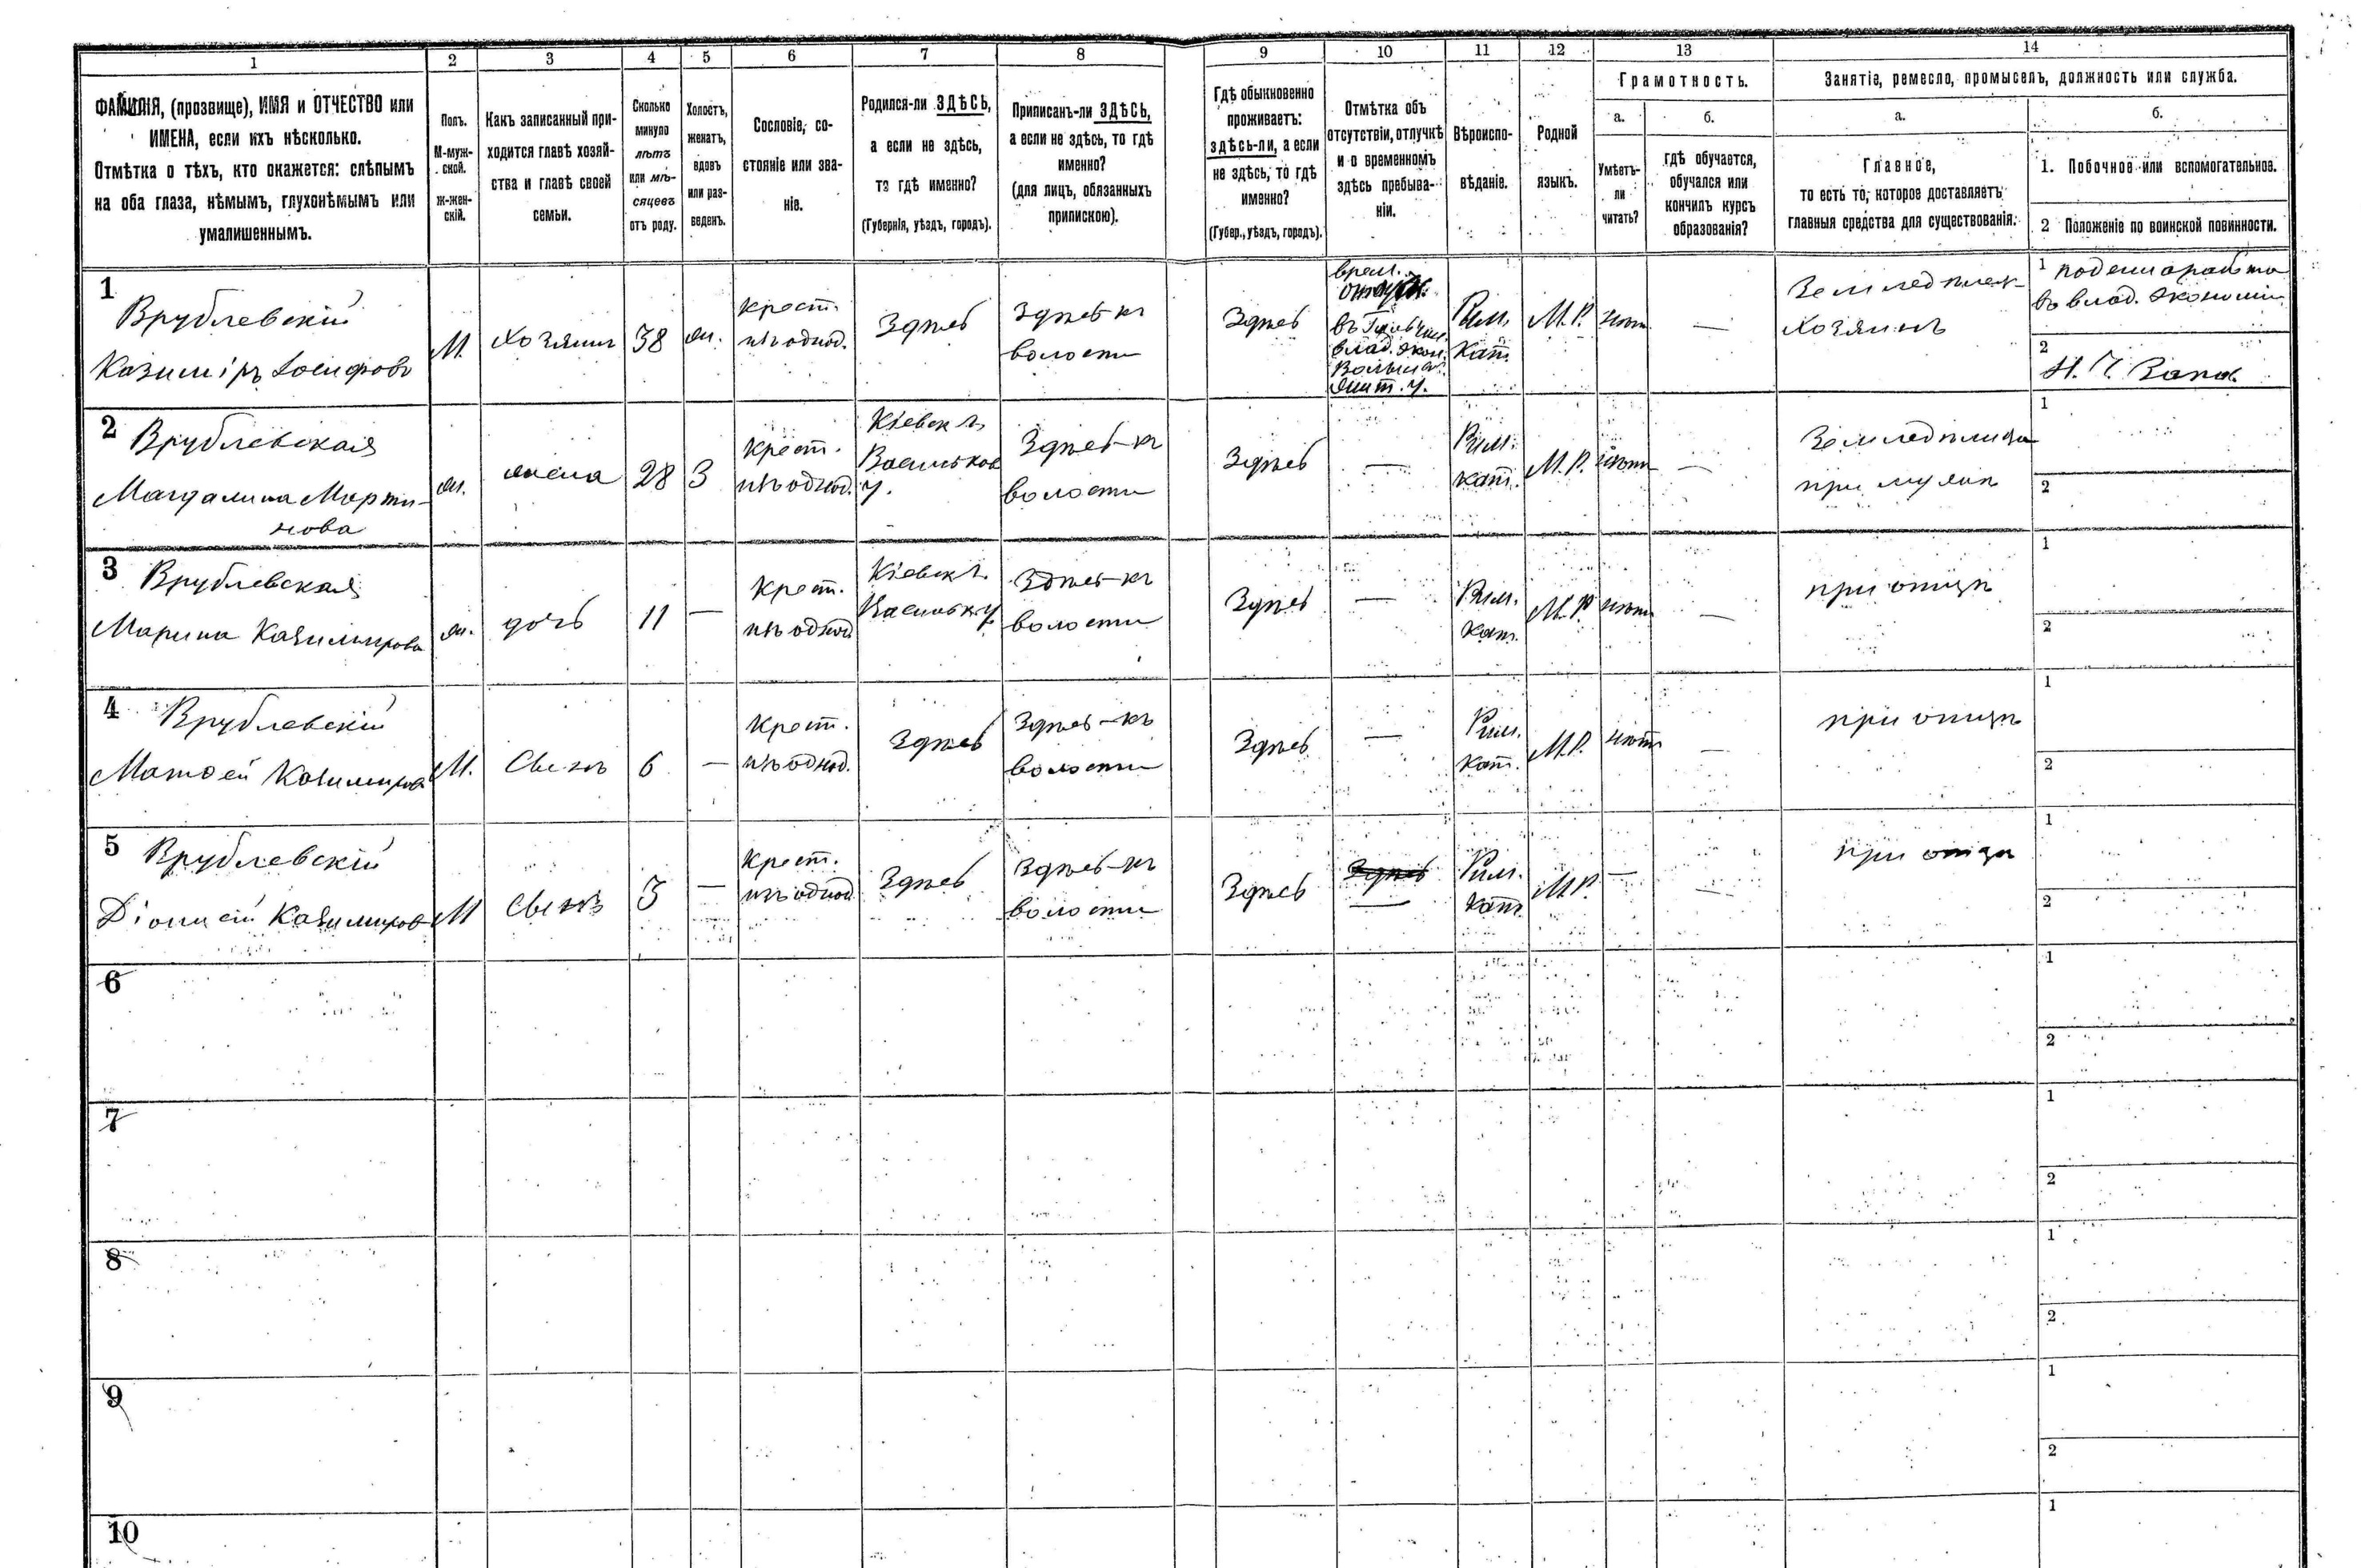 1 2 3 4 5 6 7 8 9 10 11 12 13 14
ФАМИЛІЯ, (прозвище), ИМЯ и ОТЧЕСТВО или
ИМЕНА, если ихъ нѣсколько.
Отмѣтка о тѣхъ, кто окажется: слѣпымъ
на оба глаза, нѣмымъ, глухонѣмымъ или
умалишеннымъ.
Полъ.
М-муж-
ской.
ж-жен-
скій.
Какъ записанный при-
ходится главѣ хозяй-
ства и главѣ своей
семьи.
Сколько
минуло
лѣтъ
или мѣ-
сяцевъ
отъ роду.
Холостъ,
женатъ,
вдовъ
или раз-
веденъ.
Сословіе, со-
стояніе или зва-
ніе.
Родился-ли ЗДѢСЬ,
а если не здѣсь,
то гдѣ именно?
(Губернія, уѣздъ, городъ).
Приписанъ-ли ЗДѢСЬ,
а если не здѣсь, то гдѣ
именно?
(для лицъ, обязанныхъ
припискою).
Гдѣ обыкновенно
проживаетъ:
здѣсь-ли, а если
не здѣсь, то гдѣ
именно?
(Губер., уѣздъ, городъ).
Отмѣтка объ
отсутствіи, отлучкѣ
и о временномъ
здѣсь пребыва-
ніи.
Вѣроиспо-
вѣданіе.
Родной
языкъ.
Грамотность.
а.
Умѣетъ-
ли
читать?
б.
гдѣ обучается,
обучался или
кончилъ курсъ
образованія?
Занятіе, ремесло, промыселъ, должность или служба.
а.
Главное,
то есть то, которое доставляетъ
главныя средства для существованія.
б.
1. Побочное или вспомогательное.
2 Положеніе по воинской повинности.
1
Врублевскій
Казиміръ Іосифовъ
М.
хозяинъ
38
жн.
крест.
изъ однод.
Здѣсь
Здѣсь-къ
волости
Здѣсь
врем.
Волынск.
Жит. у.
Рим.
Кат.
М.Р.
нѣтъ
—
Земледѣлецъ
хозяинъ
1
въ влад. экономіи
2
2
Врублевская
Магдалина Марти-
нова
ж.
жена
28
З
крест.
изъ однод.
Кіевск г.
Васильков
у.
Здѣсь-къ
волости
Здѣсь
—
Рим.
кат.
М.Р.
нѣтъ
—
Земледѣлица
при мужѣ
1
2
3
Врублевская
Марина Казимирова
ж.
дочь
11
—
крест.
изъ однод.
Кіевск г.
Васильк у.
Здѣсь-къ
волости
Здѣсь
—
Рим.
Кат.
М.Р.
нѣтъ
—
при отцѣ
1
2
4
Врублевскій
Матѳей Казимиров
М.
Сынъ
6
—
крест.
изъ однод.
Здѣсь
Здѣсь-къ
волости
Здѣсь
—
Рим.
кат.
М.Р.
нѣтъ
—
при отцѣ
1
2
5
Врублевскій
Діонисій Казимиров
М
Сынъ
3
—
крест.
изъ однод
Здѣсь
Здѣсь-къ
волости
Здѣсь
Здѣсь
—
Рим.
кат.
М.Р.
—
—
при отцѣ
1
2
6
1
2
7
1
2
8
1
2
9
1
2
10
1